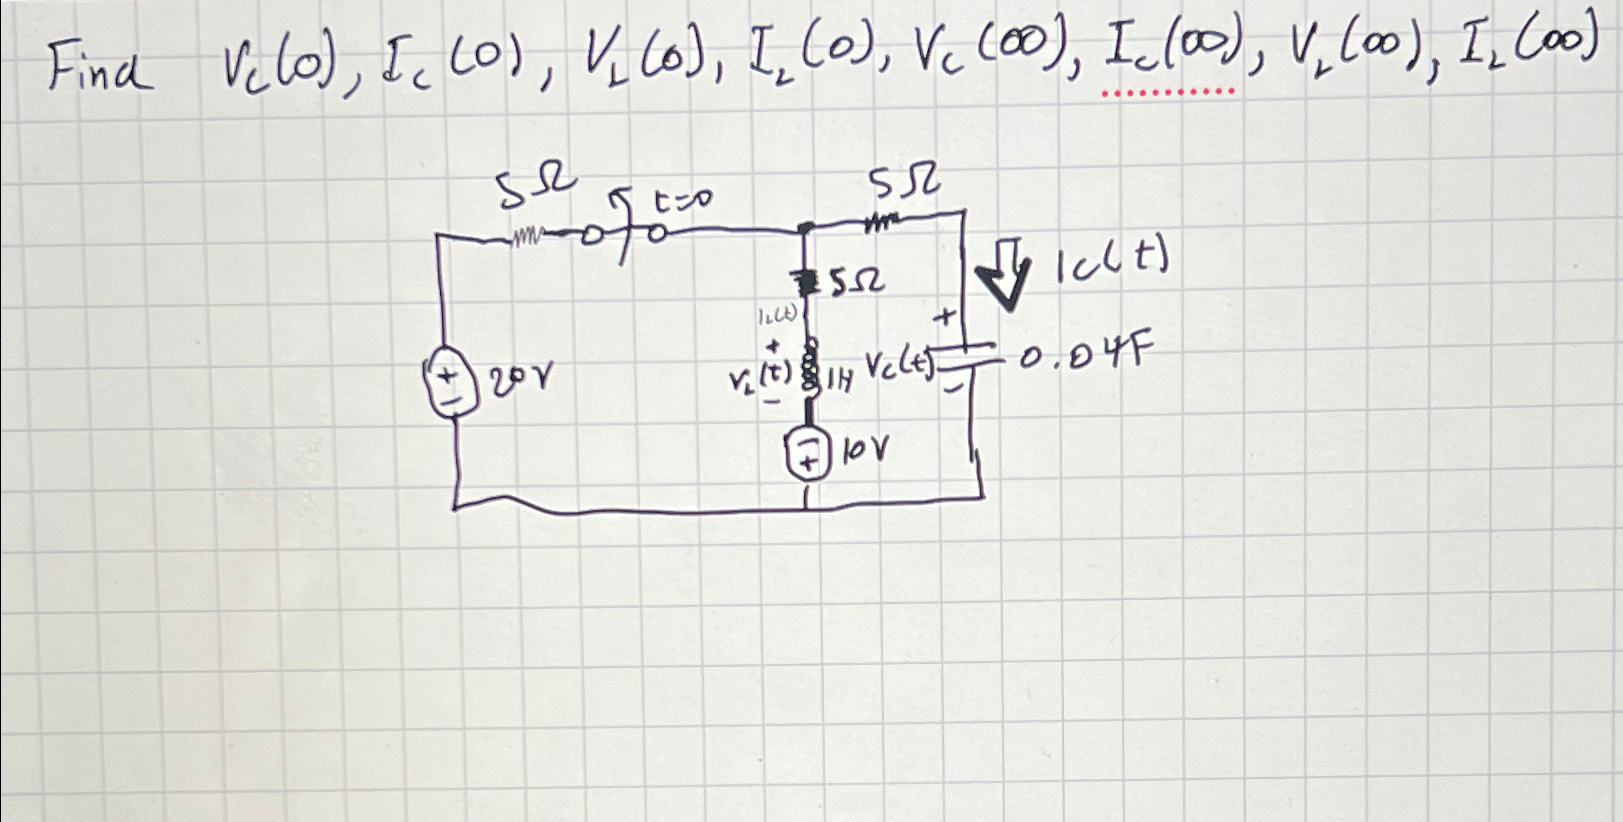 Find Vc(0), Ic(0), VL(0), IL(0), Vc(∞), Ic(∞), VL(∞), IL(∞)
5Ω t=0 5Ω
5Ω
Ic(t)
IL(t)
+ +
VL(t) 1H Vc(t) 0.04F
- -
+ - 20V
- + 10V